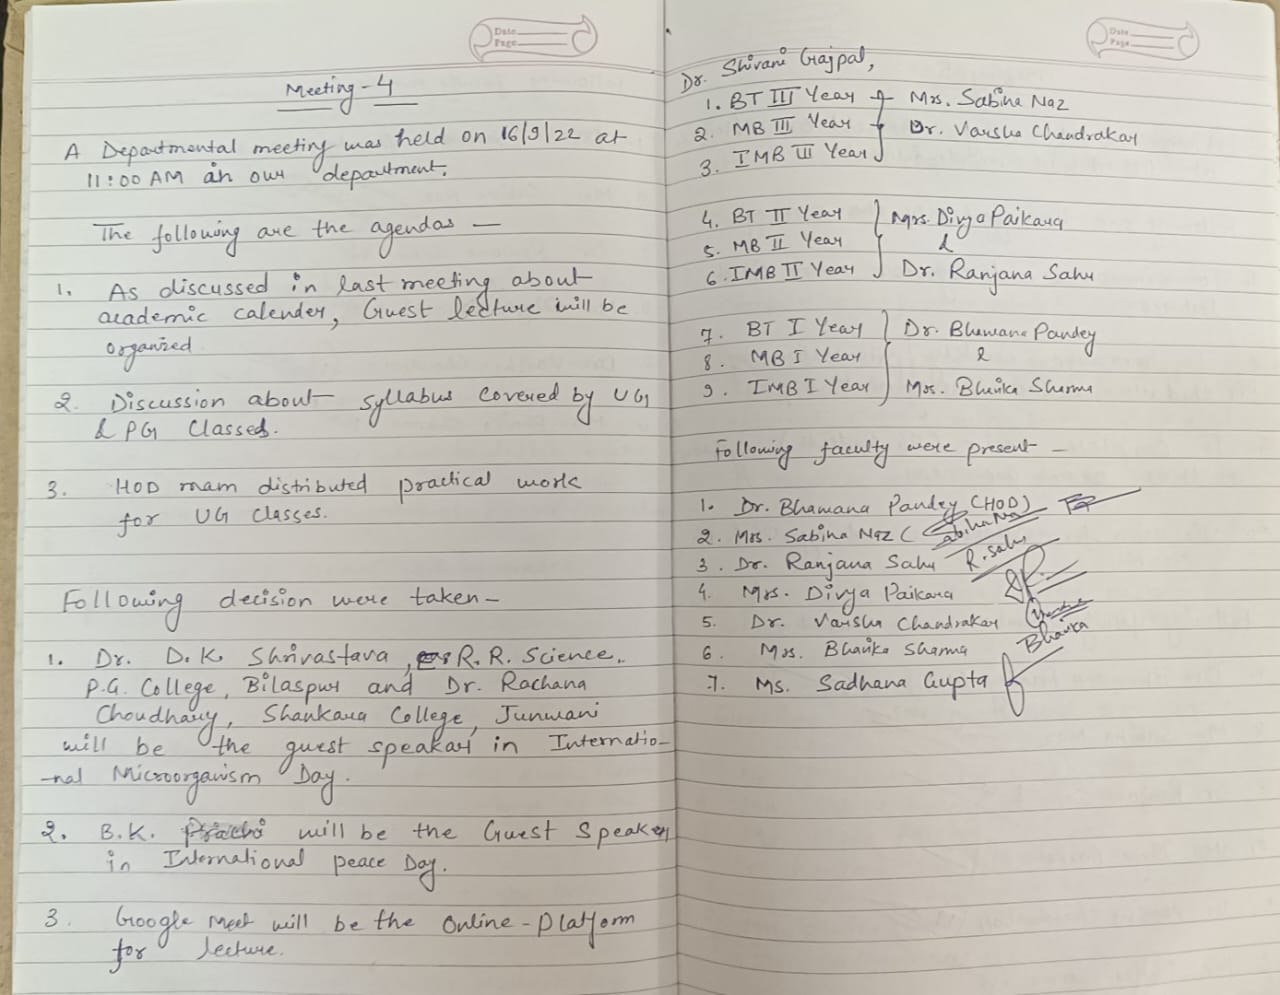 Date
Page
Meeting-4
A Departmental meeting was held on 16/9/22 at
11:00 AM in our department.
The following are the agendas —
1. As discussed in last meeting about
academic calender, Guest lecture will be
organized
2. Discussion about syllabus covered by UG
& PG Classes.
3. HOD mam distributed practical work
for UG classes.
Following decision were taken-
1. Dr. D.K. Shrivastava, R.R. Science,
P.G. College, Bilaspur and Dr. Rachana
Choudhary, Shankara College, Junwani
will be the guest speakar in Internatio-
-nal Microorganism Day.
2. B.K. Prachi will be the Guest Speaker
in International peace Day.
3. Google meet will be the Online-Platform
for lecture.
Date
Page
Dr. Shivani Gajpal,
1. BT III Year Mrs. Sabiha Naz
2. MB III Year Dr. Varsha Chandrakar
3. IMB III Year
4. BT II Year Mrs. Divya Paikara
5. MB II Year &
6. IMB II Year Dr. Ranjana Sahu
7. BT I Year Dr. Bhawana Pandey
8. MB I Year &
9. IMB I Year Mrs. Bhavika Sharma
Following faculty were present —
1. Dr. Bhawana Pandey (HOD)
2. Mrs. Sabiha Naz (Sabiha Naz
3. Dr. Ranjana Sahu R. Sahu
4. Mrs. Divya Paikara
5. Dr. Varsha Chandrakar
6. Mrs. Bhavika Sharma Bhavika
7. Ms. Sadhana Gupta